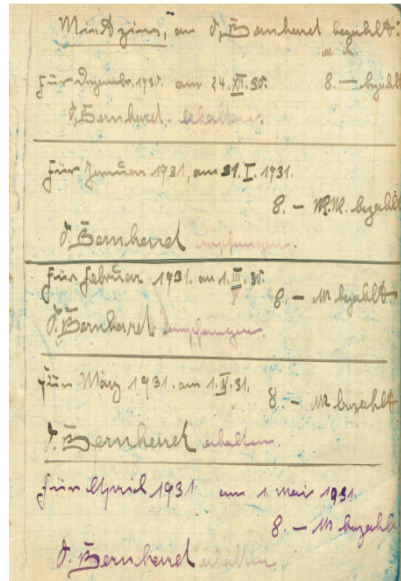 Mietzins, an J. Bernhard bezahlt:
für Dezember 1930. am 24. XII. 30. 8. — bezahlt
J. Bernhard erhalten.
für Januar 1931, am 31. I. 1931.
8. — M. bezahlt
J. Bernhard empfangen.
für Februar 1931. am 1. III. 31.
8. — M bezahlt
J. Bernhard empfangen.
für März 1931. am 1. 31.
8. — M bezahlt
J. Bernhard erhalten.
für April 1931 am 1. Mai 1931.
8. — M bezahlt
J. Bernhard erhalten.